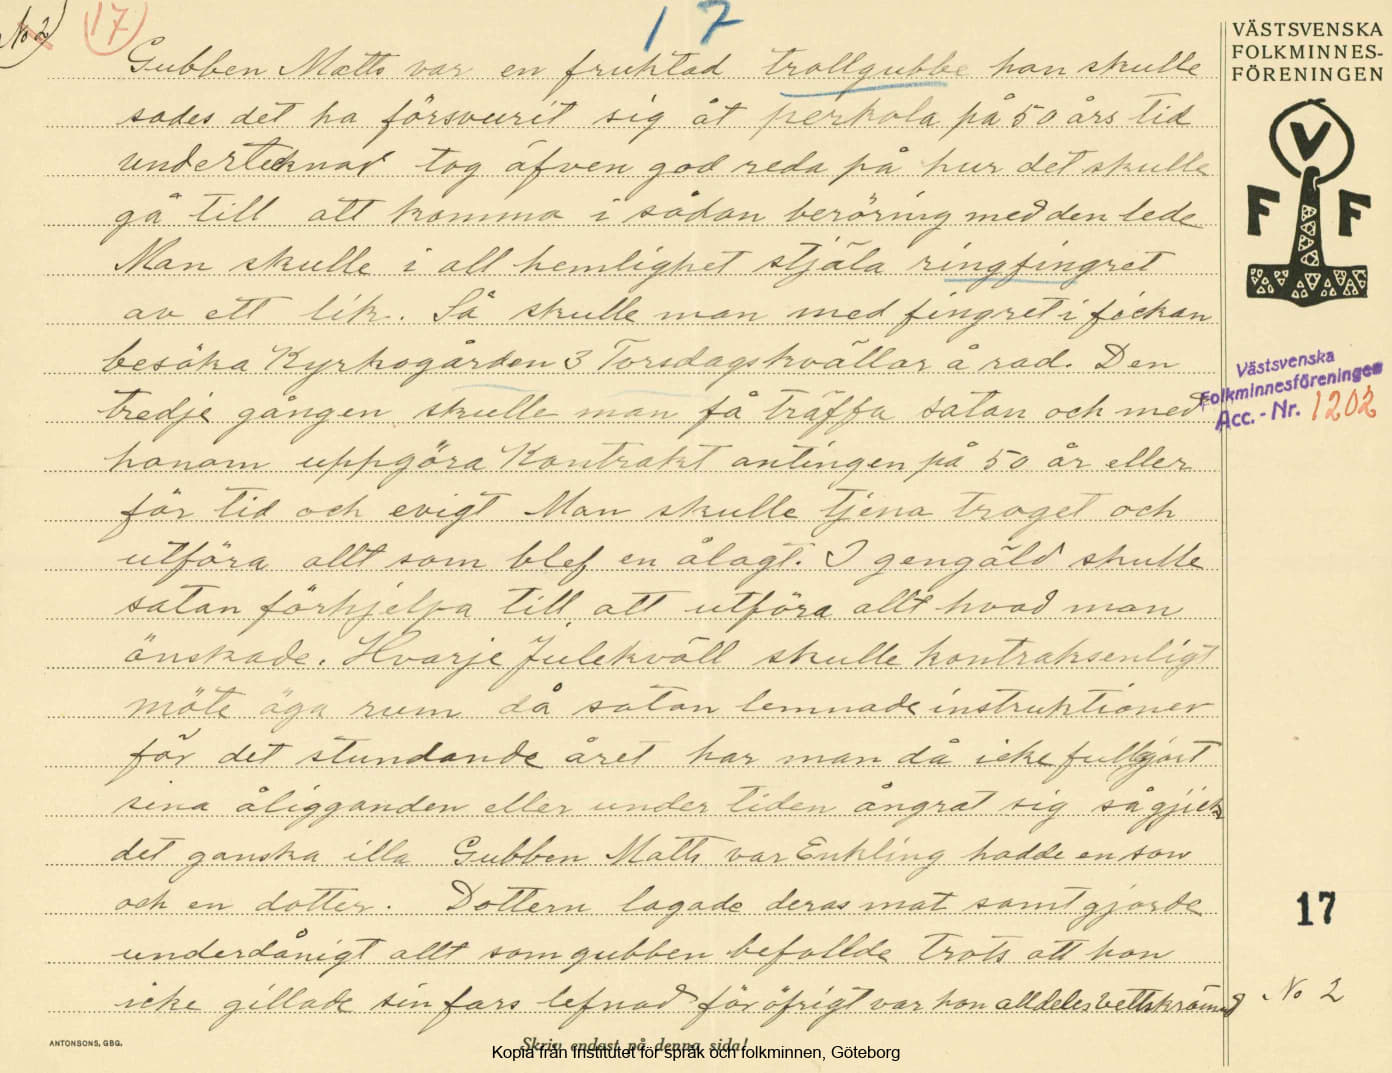 No 2
17
17
VÄSTSVENSKA
FOLKMINNES-
FÖRENINGEN
V
F F
Gubben Matts var en fruktad trollgubbe han skulle
sades det ha försvurit sig åt perkola på 50 års tid
undertecknad tog äfven god reda på hur det skulle
gå till att komma i sådan beröring med den lede
Man skulle i all hemlighet stjäla ringfingret
av ett lik. Så skulle man med fingret i fickan
besöka Kyrkogården 3 Torsdagskvällar å rad. Den
tredje gången skulle man få träffa satan och med
honom uppgöra Kontrakt antingen på 50 år eller
för tid och evigt Man skulle tjena troget och
utföra allt som blef en ålagt. I gengäld skulle
satan förhjelpa till att utföra allt hvad man
önskade. Hvarje Julekväll skulle kontraksenligt
möte äga rum då satan lemnade instruktioner
för det stundande året har man då icke fullgjort
sina åligganden eller under tiden ångrat sig så gjick
det ganska illa Gubben Matts var Enkling hadde en son
och en dotter. Dottern lagade deras mat samt gjorde
underdånigt allt som gubben befallde trots att hon
icke gillade sin fars lefnad för öfrigt var hon alldeles vettskrämd
Västsvenska
Folkminnesföreningen
Acc.-Nr. 1202
17
No 2
ANTONSONS, GBG.
Skriv endast på denna sida!
Kopia från Institutet för språk och folkminnen, Göteborg